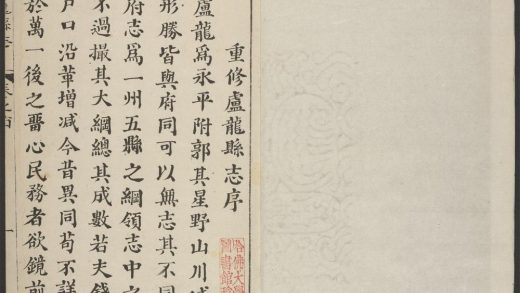 重修盧龍縣志序
盧龍爲永平附郭其星野山川
形勝皆與府同可以無志其不同
府志爲一州五縣之綱領志中之
不過撮其大綱總其成數若夫錢
戶口沿革增减今昔異同苟不詳
於萬一後之畱心民務者欲鏡前
一
哈佛大學
圖書館珍